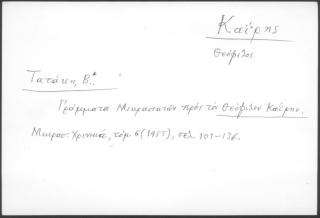 Καΐρης
Θεόφιλος
Τατάκη, Β.:
Γράμματα Μικρασιατῶν πρὸς τὸν Θεόφιλον Καΐρην.
Μικρασ. Χρονικά, τόμ 6 (1955), σελ 101-136.